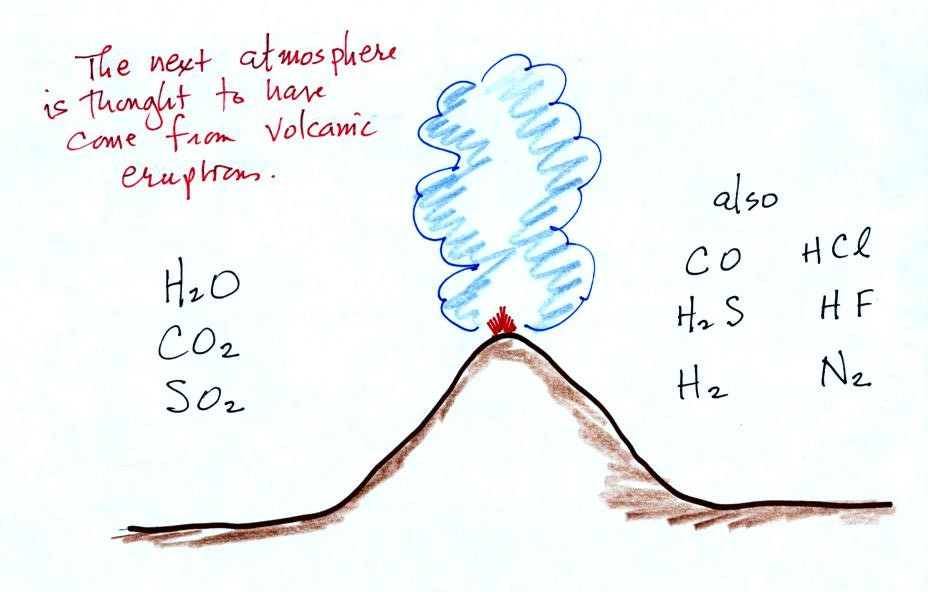 The next atmosphere
is thought to have
come from volcanic
eruptions.
also
H₂O
CO₂
SO₂
CO HCl
H₂S HF
H₂ N₂